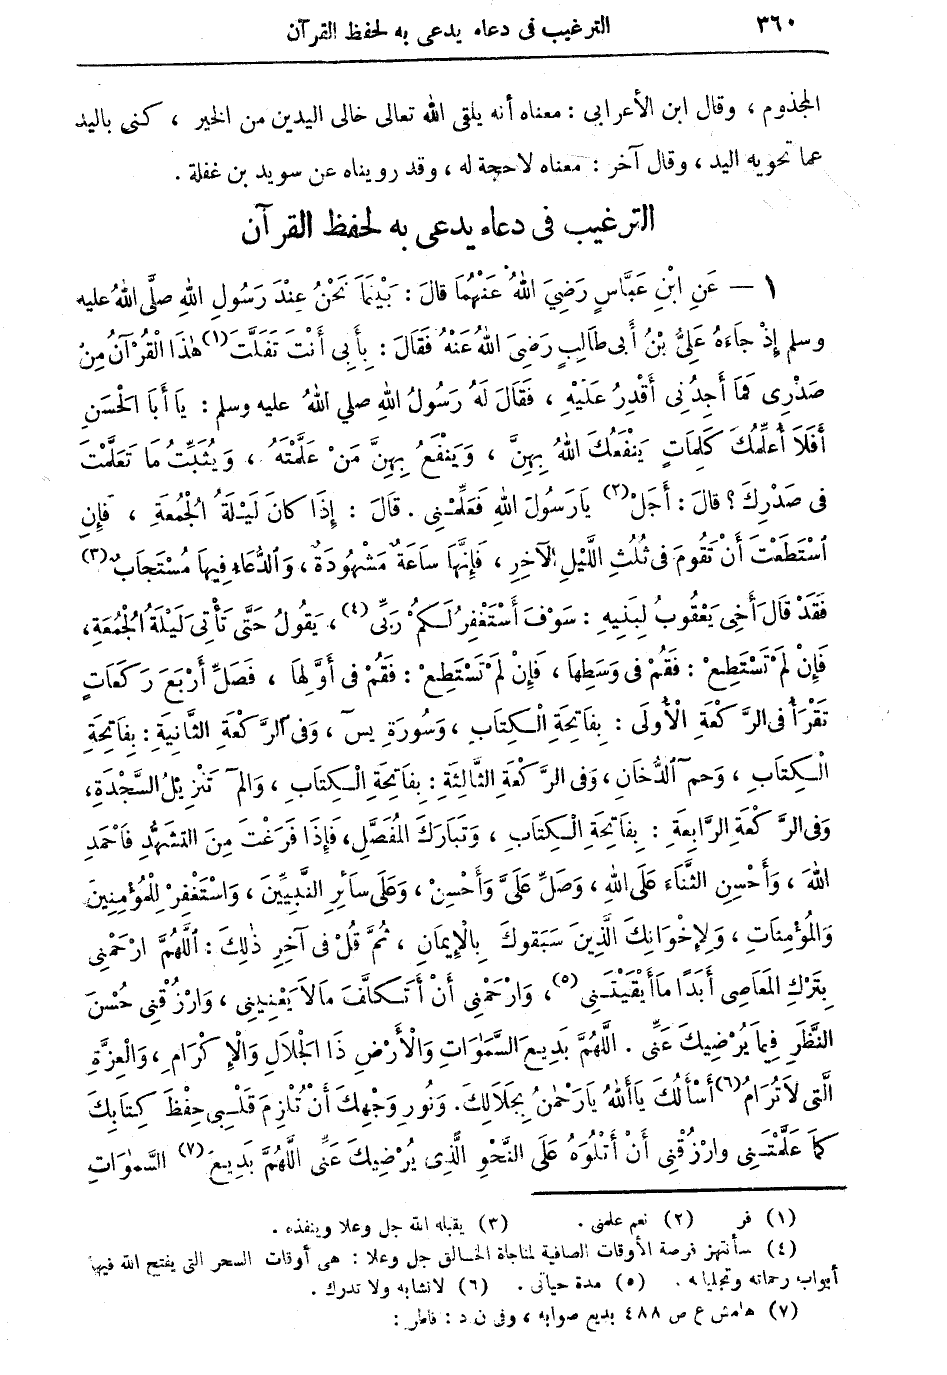 ٣٦٠ الترغيب فى دعاء يدعى به لحفظ القرآن
المجذوم ، وقال ابن الأعرابى : معناه أنه يلقى الله تعالى خالى اليدين من الخير ، كنى باليد
عما تحويه اليد ، وقال آخر : معناه لاحجة له ، وقد رويناه عن سويد بن غفلة .
الترغيب فى دعاء يدعى به لحفظ القرآن
١ — عَنِ ابْنِ عَبَّاسٍ رَضِيَ اللهُ عَنْهُمَا قَالَ : بَيْنَمَا نَحْنُ عِنْدَ رَسُولِ اللهِ صلَّى اللهُ عليه
وسلم إِذْ جَاءَهُ عَلِيُّ بْنُ أَبى طَالِبٍ رَضِيَ اللهُ عَنْهُ فَقَالَ : بِأَبِى أَنْتَ تَفَلَّتَ (١) هٰذَا الْقُرْآنُ مِنْ
صَدْرِى فَمَا أَجِدُنِى أَقْدِرُ عَلَيْهِ ، فَقَالَ لَهُ رَسُولُ اللهِ صلي اللهُ عليه وسلم : يَا أَبَا الْحَسَنِ
أَفَلَا أُعَلِّمُكَ كَلِمَاتٍ يَنْفَعُكَ اللهُ بِهِنَّ ، وَيَنْفَعُ بِهِنَّ مَنْ عَلَّمْتَهُ ، وَيُثَبِّتُ مَا تَعَلَّمْتَ
فى صَدْرِكَ ؟ قَالَ : أَجَلْ (٢) يَارَسُولَ اللهِ فَعَلِّمْنِى . قَالَ : إِذَا كَانَ لَيْلَةُ الْجُمُعَةِ ، فَإِنِ
اسْتَطَعْتَ أَنْ تَقُومَ فى ثُلُثِ اللَّيْلِ الْآخِرِ ، فَإِنَّهَا سَاعَةٌ مَشْهُودَةٌ ، وَالدُّعَاءُ فِيهَا مُسْتَجَابٌ (٣)
فَقَدْ قَالَ أَخِى يَعْقُوبُ لِبَنِيهِ : سَوْفَ أَسْتَغْفِرُ لَكُمْ رَبِّى (٤) ، يَقُولُ حَتَّى تَأْتِىَ لَيْلَةُ الْجُمُعَةِ ،
فَإِنْ لَمْ تَسْتَطِعْ : فَقُمْ فى وَسَطِهَا ، فَإِنْ لَمْ تَسْتَطِعْ : فَقُمْ فى أَوَّلِهَا ، فَصَلِّ أَرْبَعَ رَكَعَاتٍ
تَقْرَأُ فى الرَّكْعَةِ الْأُولَى : بِفَاتِحَةِ الْكِتَابِ ، وَسُورَةِ يسٓ ، وَفى الرَّكْعَةِ الثَّانِيَةِ : بِفَاتِحَةِ
الْكِتَابِ ، وَحمٓ الدُّخَانِ ، وَفى الرَّكْعَةِ الثَّالِثَةِ : بِفَاتِحَةِ الْكِتَابِ ، وَالمٓ تَنْزِيلُ السَّجْدَةِ ،
وَفى الرَّكْعَةِ الرَّابِعَةِ : بِفَاتِحَةِ الْكِتَابِ ، وَتَبَارَكَ الْمُفَصَّلِ ، فَإِذَا فَرَغْتَ مِنَ التَّشَهُّدِ فَاحْمَدِ
اللهَ ، وَأَحْسِنِ الثَّنَاءَ عَلَى اللهِ ، وَصَلِّ عَلَىَّ وَأَحْسِنْ ، وَعَلَى سَائِرِ النَّبِيِّينَ ، وَاسْتَغْفِرْ لِلْمُؤْمِنِينَ
وَالْمُؤْمِنَاتِ ، وَلِإِخْوَانِكَ الَّذِينَ سَبَقُوكَ بِالْإِيمَانِ ، ثُمَّ قُلْ فى آخِرِ ذٰلِكَ : اَللَّهُمَّ ارْحَمْنِى
بِتَرْكِ الْمَعَاصِى أَبَدًا مَاأَبْقَيْتَنِى (٥) ، وَارْحَمْنِى أَنْ أَتَكَلَّفَ مَالَا يَعْنِينِى ، وَارْزُقْنِى حُسْنَ
النَّظَرِ فِيمَا يُرْضِيكَ عَنِّى . اللَّهُمَّ بَدِيعَ السَّمٰوَاتِ وَالْأَرْضِ ذَا الْجَلَالِ وَالْإِكْرَامِ ، وَالْعِزَّةِ
الَّتِى لَا تُرَامُ (٦) أَسْأَلُكَ يَاأَللهُ يَارَحْمٰنُ بِجَلَالِكَ . وَنُورِ وَجْهِكَ أَنْ تُلْزِمَ قَلْبِى حِفْظَ كِتَابِكَ
كَمَا عَلَّمْتَنِى وارْزُقْنِى أَنْ أَتْلُوَهُ عَلَى النَّحْوِ الَّذِى يُرْضِيكَ عَنِّى اللَّهُمَّ بَدِيعَ (٧) السَّمٰوَاتِ
(١) فر (٢) نعم علمنى . (٣) يقبله الله جل وعلا وينفذه .
(٤) سأنتهز فرصة الأوقات الصافية لمناجاة الخالق جل وعلا : هى أوقات السحر التى يفتح الله فيها
أبواب رحماته وتجلياته . (٥) مدة حياتى . (٦) لا تشابه ولا تدرك .
(٧) هامش ع ص ٤٨٨ بديع صوابه ، وفى ن د : فاطر :